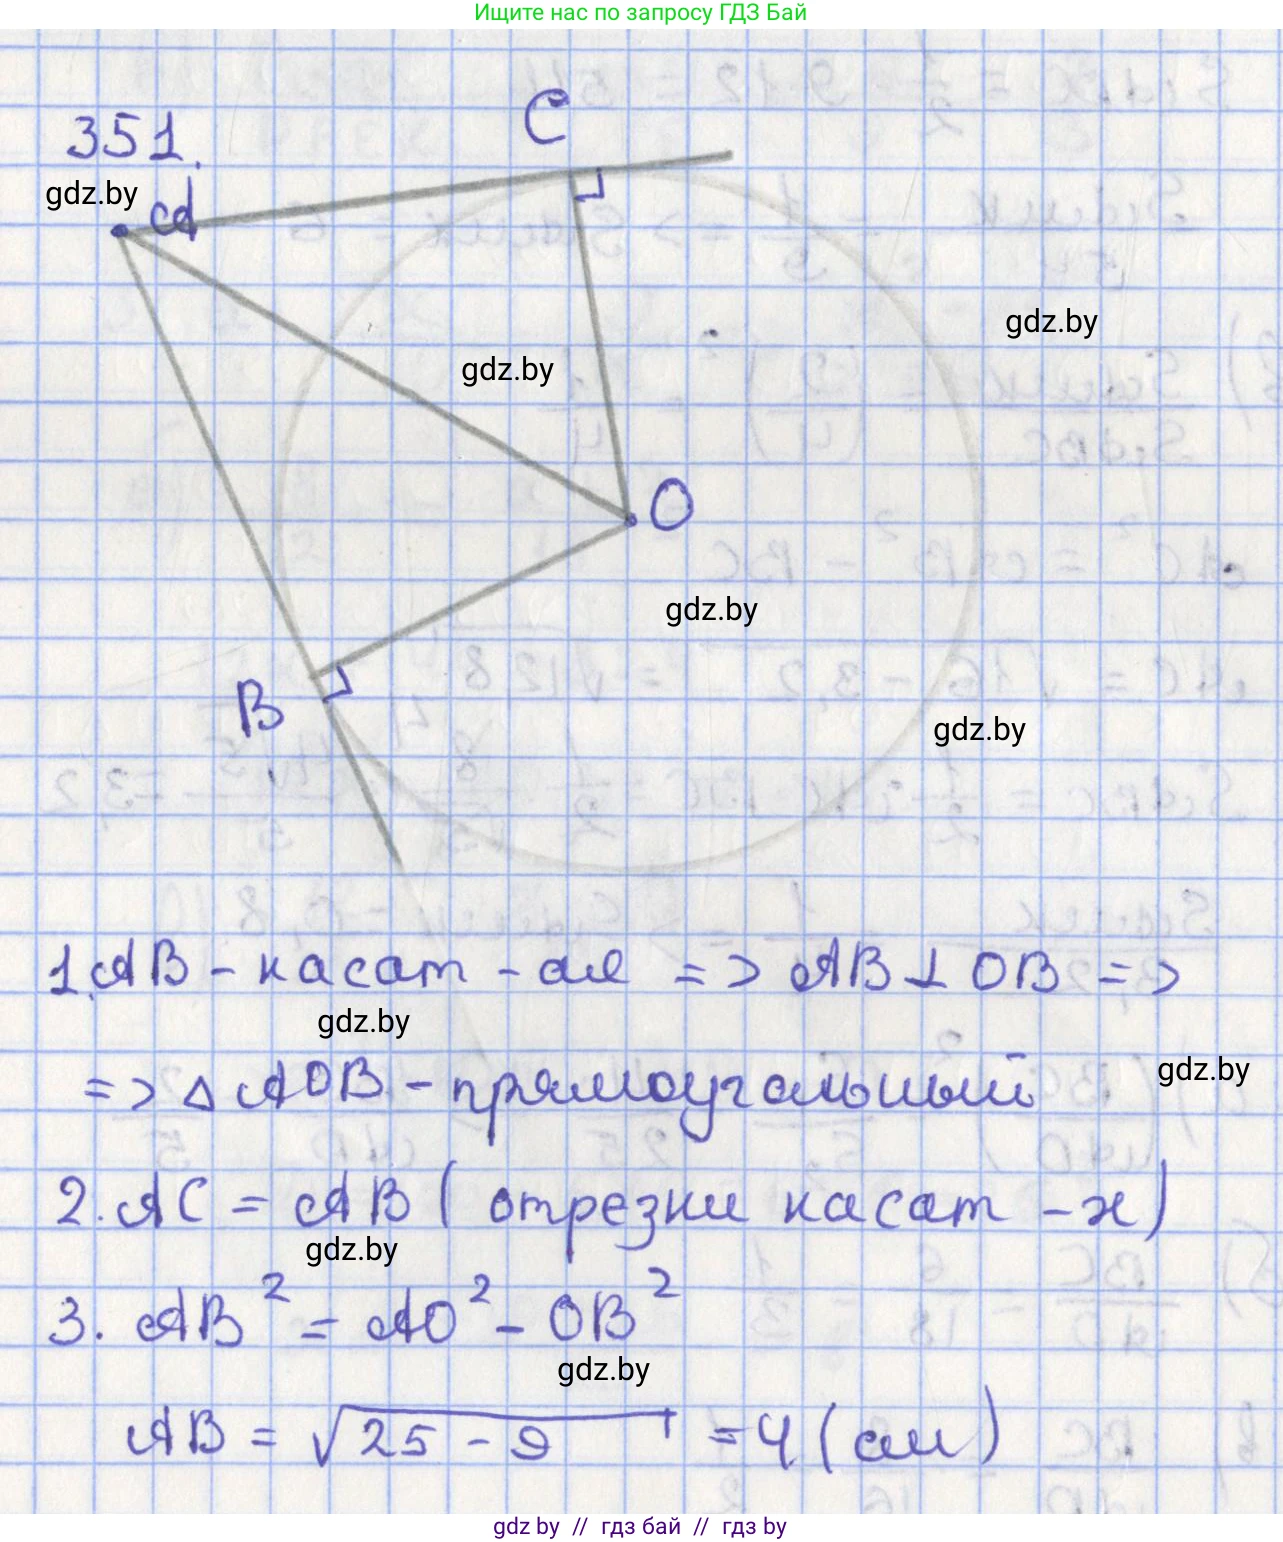 Ищите нас по запросу ГДЗ Бай
351.
C
gdz.by
A
gdz.by
gdz.by
O
gdz.by
B
gdz.by
1. AB - касат - ая => AB ⊥ OB =>
gdz.by
gdz.by
=> △ AOB - прямоугольный
2. AC = AB ( отрезки касат - х)
gdz.by
3. AB² = AO² - OB²
gdz.by
AB = √25 - 9 = 4 (см)
gdz by // гдз бай // гдз by